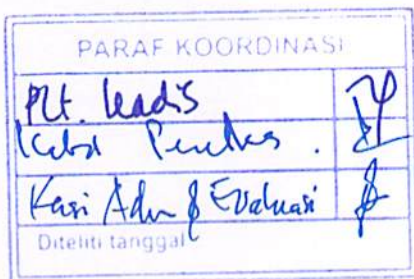 PARAF KOORDINASI
Plt. Kadis
Kabid
Kasi Adm & Evaluasi
Diteliti tanggal